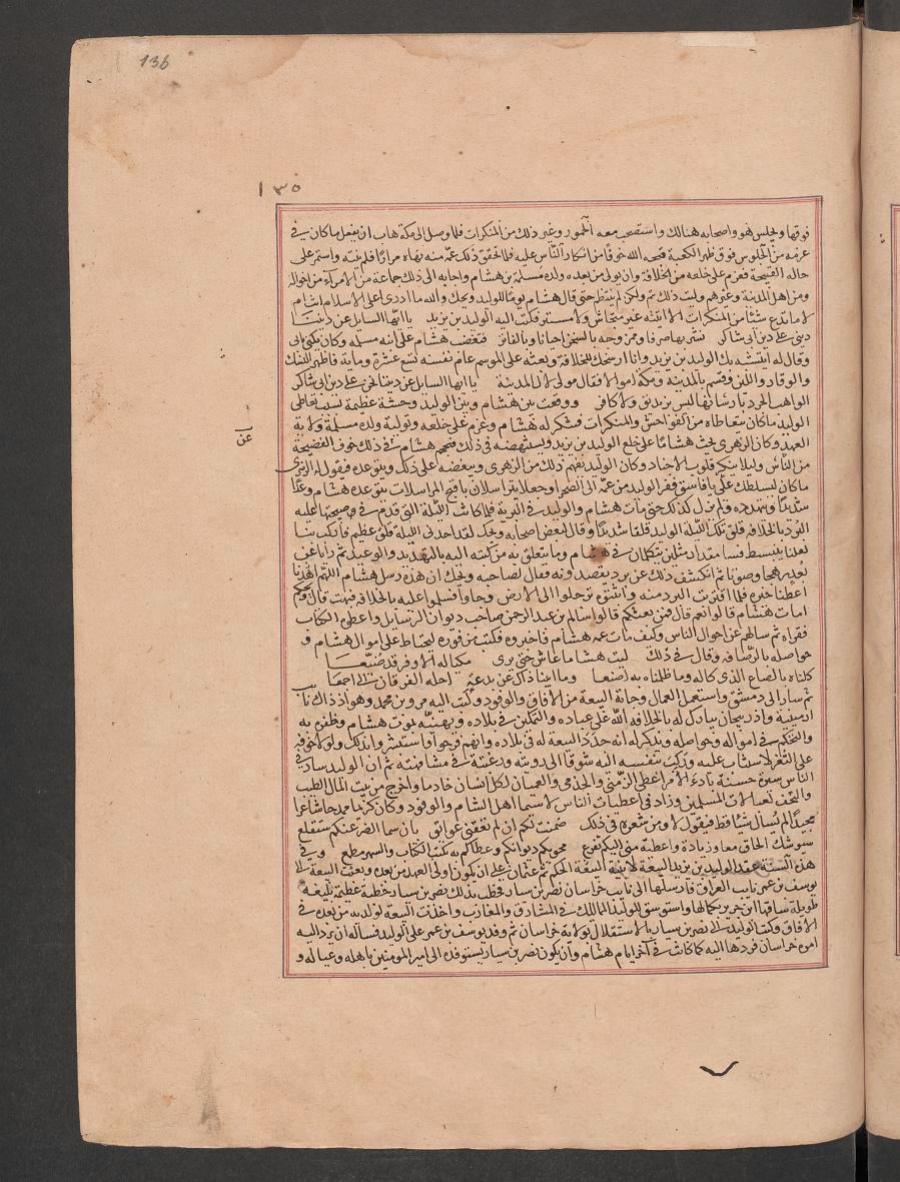 136
١٣٥
فوقها ويجلس هو واصحابه هنالك واستصحب معه الخمور وغير ذلك من المنكرات فلما وصل الى مكة هاب ان يفعل ما كان في
عزمه من الجلوس فوق ظهر الكعبة خوفا من انكار الناس عليه فلما تحقق ذلك عمه منه نهاه مرارا فلم ينته واستمر على
حاله القبيحة فعزم على خلعه من الخلافة وان يولى من بعده ولده مسلمة بن هشام واجابه الى ذلك جماعة من الامرآء من اخواله
ومن اهل المدينة وغيرهم وليت ذلك تم ولكن لم ينتظم حتى قال هشام يوما للوليد ويحك والله ما ادرى اعلى الاسلام انت ام
لا ما تدع شيئا من المنكرات الا اتيته غير متحاش ولا مستتر فكتب اليه الوليد بن يزيد يا ايها السايل عن ديننا
دينى على دين ابى شاكر نشربها صرفا وممزوجة بالسخن احيانا وبالفاتر فغضب هشام على ابنه مسلمة وكان يكنى بابى
وقال له يتشبه بك الوليد بن يزيد وانا ارشحك للخلافة وبعثه على الموسم عام تسعة عشرة ومايه فاظهر النسك
والوقار واللين وقسم بالمدينة ومكة اموالا فقال مولى لال المدينة يا ايها السايل عن ديننا نحن على دين ابى شاكر
الواهب الجرد بارسانها ليس بزنديق ولا كافر ووقعت بين هشام وبين الوليد وحشة عظيمة بسبب تعاطى
الوليد ما كان يتعاطاه من الفواحش والمنكرات فتنكر له هشام وعزم على خلعه وتولية ولده مسلمة ولاية
العهد وكان الزهرى يحث هشاما على خلع الوليد بن يزيد ويستنهضه في ذلك فيحجم هشام في ذلك خوف الفضيحة
من الناس وليلا يتنكر قلوب الاجناد وكان الوليد يفهم ذلك من الزهرى ويبغضه على ذلك ويتوعده فيقول له الزهرى
ما كان ليسلطك على يا فاسق ففر الوليد من عمه الى الصحرا وجعلا يتراسلان باقبح المراسلات يتوعده هشام وعيدا
شديدا ويتهدده ولم يزل كذلك حتى مات هشام والوليد في البرية فلما كانت الليلة التى قدم في صبيحتها عليه
البرد بالخلافة قلق تلك الليلة الوليد قلقا شديدا وقال لبعض اصحابه ويحك لقد اخدنى الليلة قلق عظيم فاركب بنا
لعلنا نتبسط فسارا مقدار ميلين يتكلمان في هشام وما يتعلق به من كتبه اليه بالتهديد والوعيد ثم رايا عن
بعد رهجا وصوتا ثم انكشف ذلك عن برد يقصدونه فقال لصاحبه ويحك ان هذه رسل هشام اللهم
اعطنا خيرها فلما اقتربت البرد منه واثبتوه ترجلوا الى الارض وجاوا فسلموا عليه بالخلافة فبهت قال ويحكم
امات هشام قالوا نعم قال فمن بعثكم قالوا سالم بن عبد الرحمن صاحب ديوان الرسايل واعطوه الكتاب
فقراه ثم سالهم عن احوال الناس وكيف مات عمه هشام فاخبروه فكتب من فوره ليحتاط على اموال هشام و
حواصله بالرصافة وقال في ذلك ليت هشاما عاش حتى يرى مكياله الاوفر قد ضيعا
كلناه بالصاع الذى كاله وما ظلمناه به اصبعا وما اتينا ذاك عن بدعة احله الفرقان لى اجمعا
ثم سار الى دمشق واستعمل العمال وجاته البيعة من الافاق والوفود وكتب اليه مروان بن محمد وهو اذ ذاك نايب
ارمينية واذربيجان يبارك له بالخلافة الله على عباده والتمكين في بلاده ويهنيه بموت هشام وظفره به
والتحكم في امواله وحواصله ويذكر له انه جدد البيعة له في بلاده وانهم فرحوا واستبشروا بذلك ولولا خوفه
على الثغر لاستناب عليه وركب بنفسه اليه شوقا الى رويته ورغبة في مشافهته ثم ان الوليد سار في
الناس سيرة حسنة بادى الامر اعطى الزمنى والجذمى والعميان لكل انسان خادما واخرج من بيت المال الطيب
والتحف لعيالات المسلمين وزاد في اعطيات الناس لا سيما اهل الشام والوفود وكان كريما ممدحا شاعرا
مجيدا لم يسال شيئا قط فيقول لا ومن شعره في ذلك ضمنت لكم ان لم تعقنى عوايق بان سما الضر عنكم ستقلع
سيوشك الحاق معا وزيادة واعطية منى اليكم تبرع محرمكم ديوانكم وعطاكم به تكتب الكتاب والسهر مطبع وفي
هذه السنة عقد الوليد بن يزيد البيعة لابنيه البيعة الحكم ثم عثمان على ان يكونا وليا العهد من بعده وبعث البيعة الى
يوسف بن عمر نايب العراق فارسلها الى نايب خراسان نصر بن سيار فخطب بذلك نصر بن سيار خطبة عظيمة بليغة
طويلة ساقها ابن جرير بكمالها واستوسق للوليد الممالك في المشارق والمغارب واخذت البيعة لولديه من بعده في
الافاق وكتب الوليد الى نصر بن سيار بالاستقلال بولاية خراسان ثم وفد يوسف بن عمر على الوليد فساله ان يرد اليه
امره خراسان فردها اليه كما كانت في آخر ايام هشام وان يكون نصر بن سيار يستوفده الى امير المومنين باهله وعياله و
عن